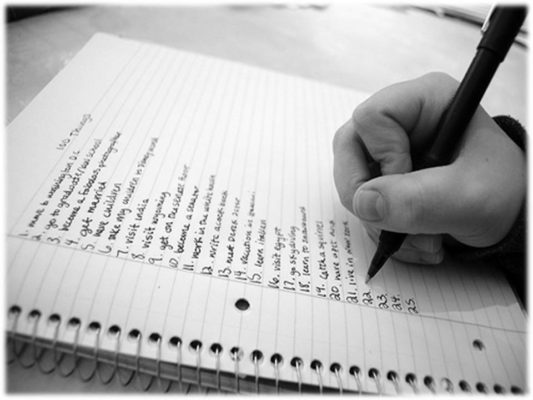 100 Things
1. move to washington D.C.
2. go to graduate/law school
3. become a famous photographer
4. get married
5. have children
6. take my children to disney world
7. visit india
8. visit
9. get on the senate floor
10. become a senator
11. work in the white house
12. write a book
13. meet Derek Jeter
14. vacation in hawaii
15. learn italian
16. visit egypt
17. go skydiving
18. learn to snowboard
19. catch a squirrel
20. have a pet
21. live in new york
22.
23.
24.
25.